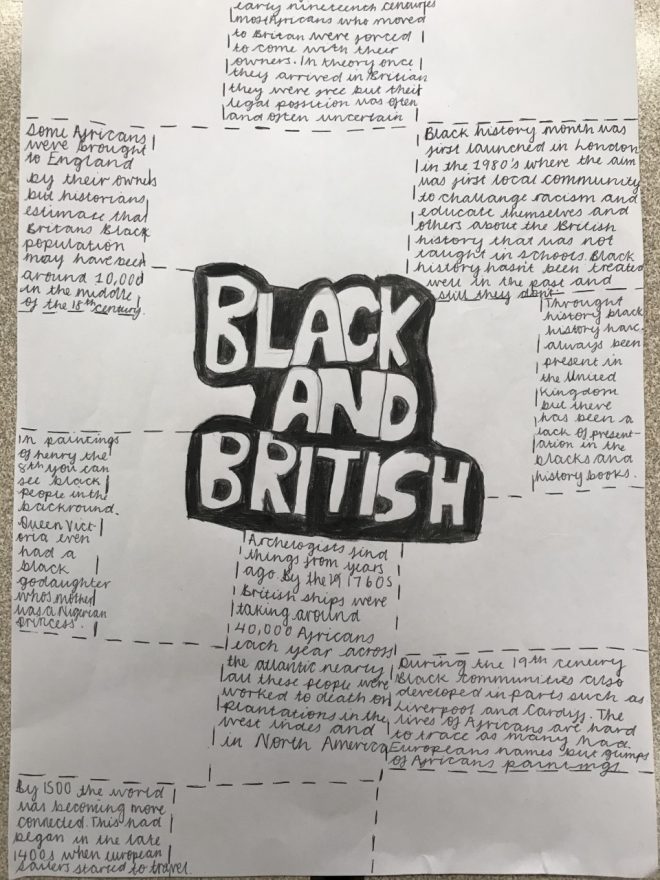 early nineteenth centuries
most Africans who moved
to Britan were forced
to come with their
owners. In theory once
they arrived in Britian
they were free but their
legal possition was often
and often uncertain
Some Africans
were brought
to England
by their owners
but historians
estimate that
Britans Black
population
may have been
around 10,000
in the middle
of the 18th century.
Black history month was
first launched in London
in the 1980's where the aim
was first local community
to challange racism and
educate themselves and
others about the British
history that was not
taught in schools. Black
history hasnt been treated
well in the past and
still they dont
BLACK
AND
BRITISH
Throught
history black
history have
always been
present in
the United
Kingdom
but there
has been a
lack of present-
ation in the
blacks and
history books.
In paintings
of henry the
8th you can
see black
people in the
backround.
Queen Vict-
oria even
had a
black
godaughter
whos mother
was a Nigerian
princess.
Archelogists find
things from years
ago. By the 1760s
British ships were
taking around
40,000 Africans
each year across
the atlantic nearly
all these people were
worked to death on
plantations in the
west indes and
in North America
During the 19th century
Black communities also
developed in parts such as
Liverpool and Cardiff. The
lives of Africans are hard
to trace as many had
Europeans names but glimps
of Africans paintings
By 1500 the world
was becoming more
connected. This had
began in the late
1400s when european
sailers started to travel.